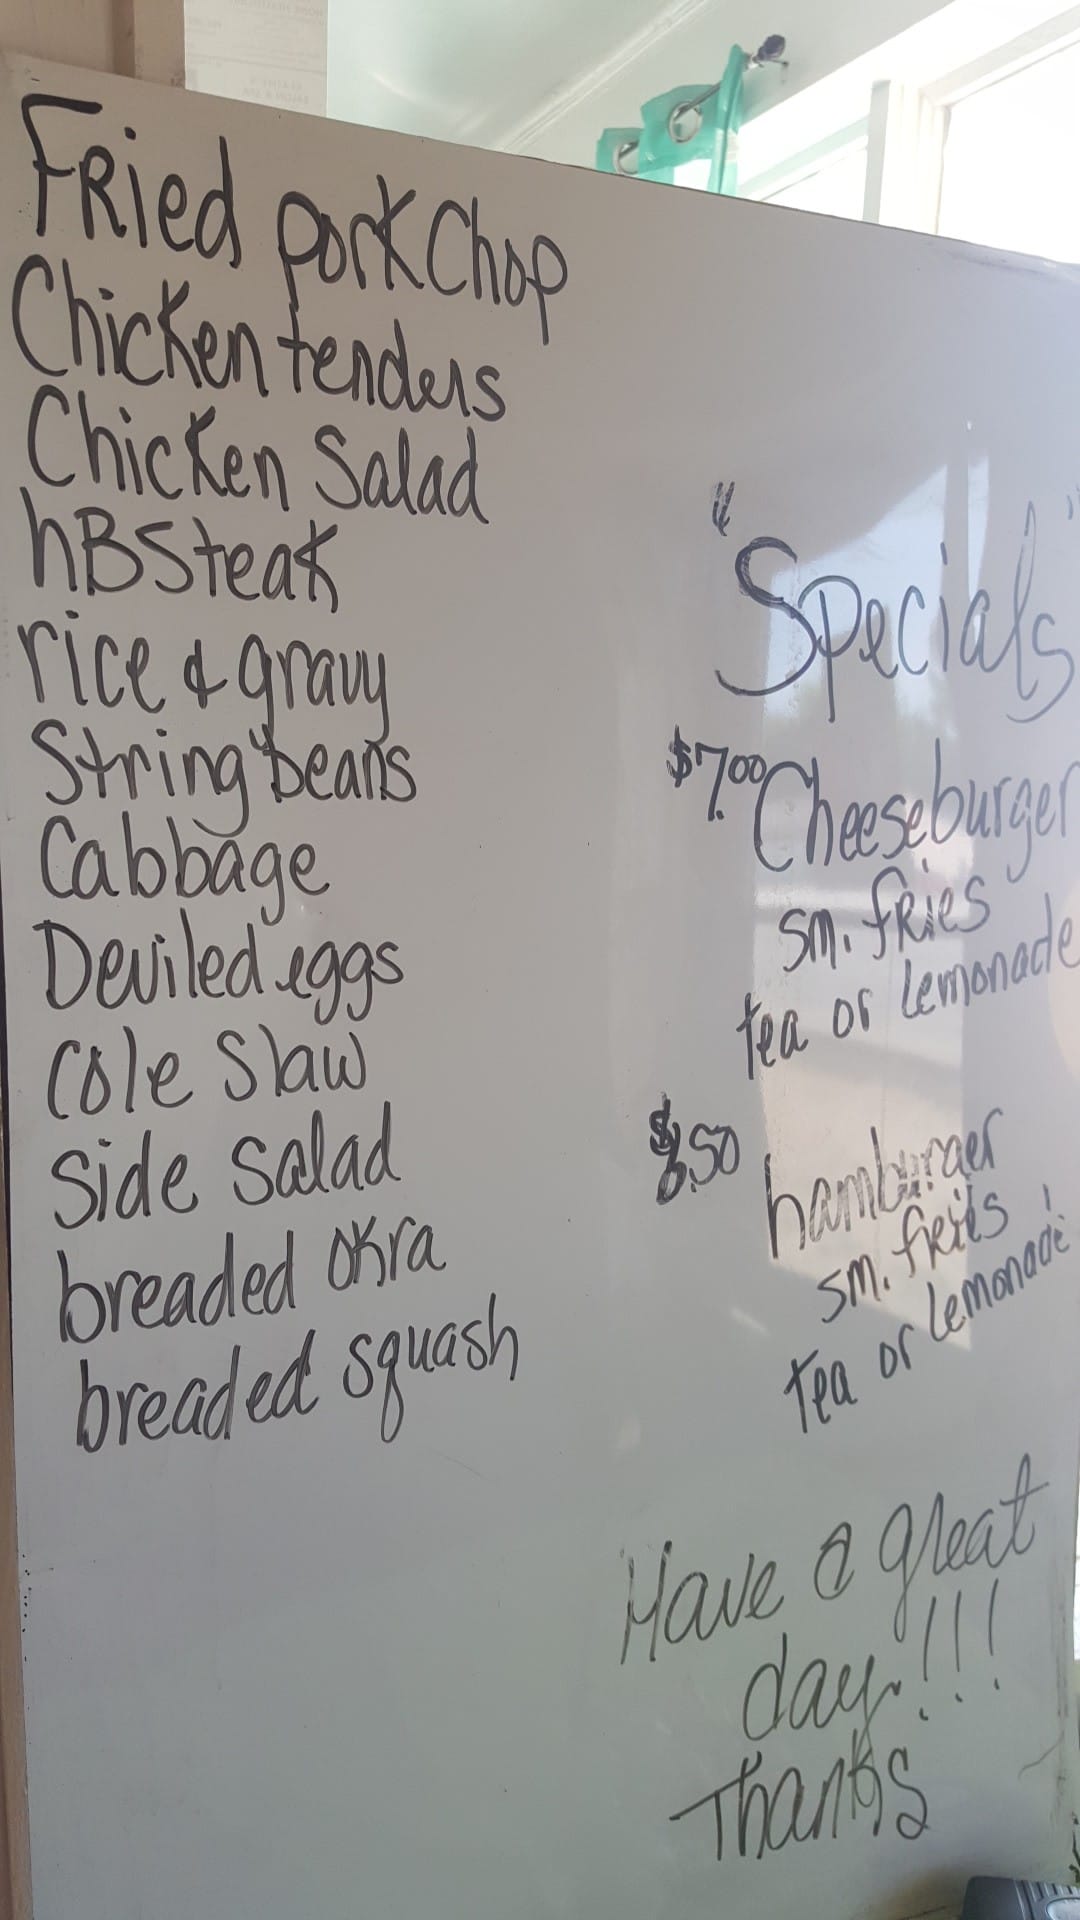 FRied porkChop
Chicken tenders
Chicken Salad
hBSteak
rice & gravy
String beans
Cabbage
Deviled eggs
Cole Slaw
Side Salad
breaded okra
breaded squash
"Specials"
$7.00 Cheeseburger
sm. fries
tea or lemonade
hamburger
sm. fries
tea or lemonade
Have a great
day!!!
Thanks